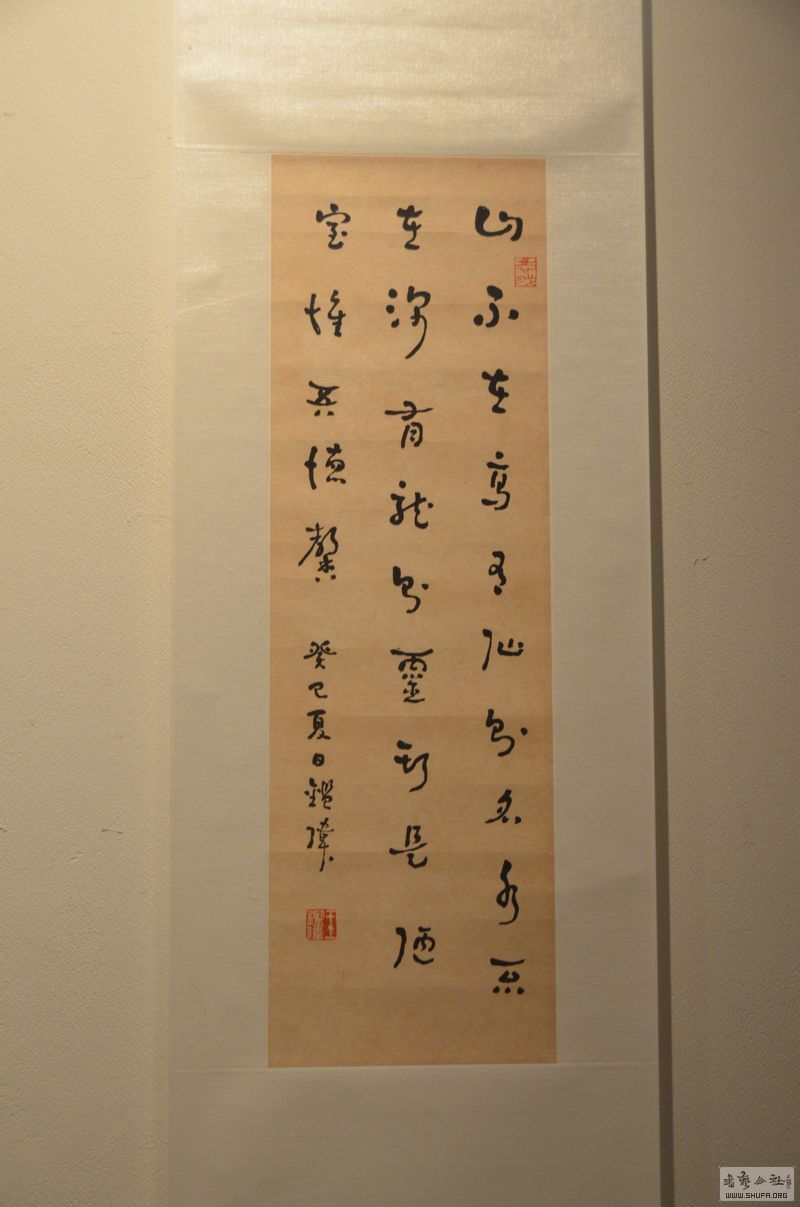 山不在高有仙則名水不
在深有龍則靈斯是陋
室惟吾德馨 癸巳夏日鑑偉
書藝公社
WWW.SHUFA.ORG